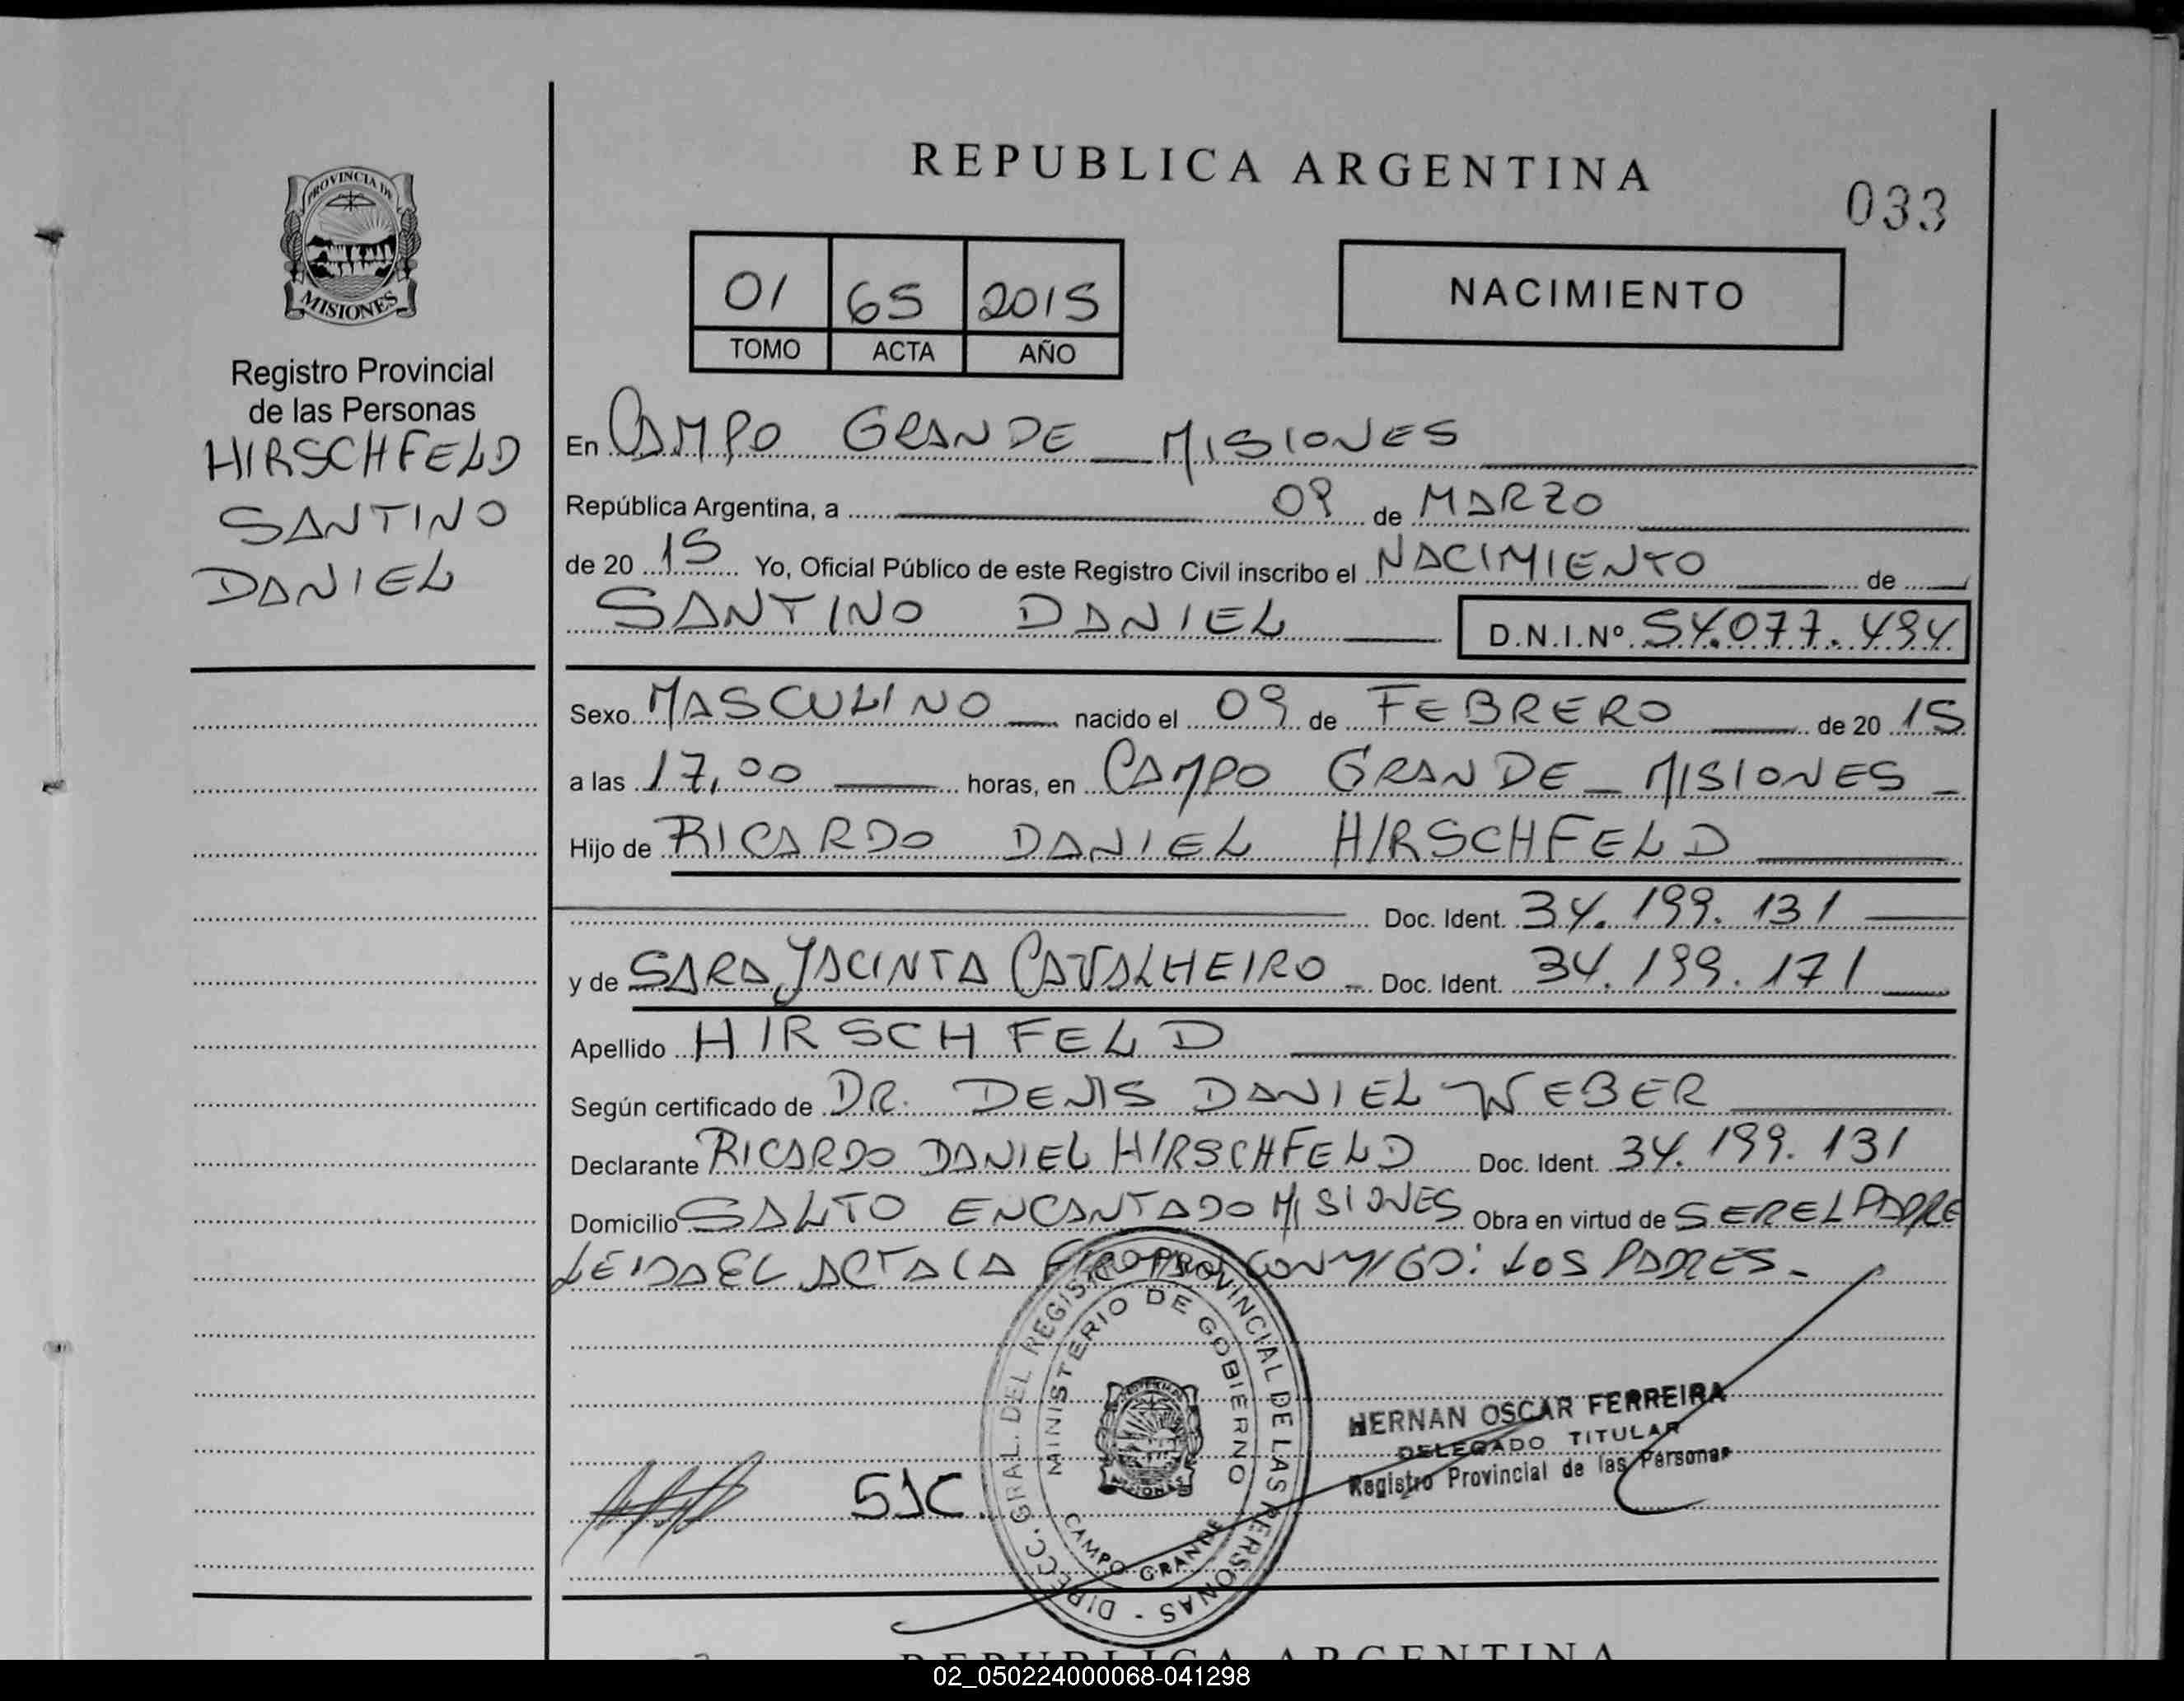 REPUBLICA ARGENTINA
033
PROVINCIA DE
MISIONES
Registro Provincial
de las Personas
HIRSCHFELD
SANTINO
DANIEL
01 65 2015
TOMO ACTA AÑO
NACIMIENTO
En CAMPO GRANDE _ MISIONES
República Argentina, a 09 de MARZO
de 20 15 Yo, Oficial Público de este Registro Civil inscribo el NACIMIENTO de
SANTINO DANIEL D.N.I.Nº 54.077.494
Sexo MASCULINO nacido el 09 de FEBRERO de 20 15
a las 17,00 horas, en CAMPO GRANDE _ MISIONES _
Hijo de RICARDO DANIEL HIRSCHFELD
Doc. Ident. 34.199.131
y de SARA JACINTA CAVALHEIRO Doc. Ident. 34.199.171
Apellido HIRSCHFELD
Según certificado de DR. DENIS DANIEL WEBER
Declarante RICARDO DANIEL HIRSCHFELD Doc. Ident. 34.199.131
Domicilio SALTO ENCANTADO MISIONES Obra en virtud de SER EL PADRE
LEIDA EL ACTA LA CONMIGO: LOS PADRES _
DIRECC. GRAL. DEL REGISTRO PROVINCIAL DE LAS PERSONAS -
MINISTERIO DE GOBIERNO
CAMPO GRANDE
HERNAN OSCAR FERREIRA
DELEGADO TITULAR
Registro Provincial de las Personas
SJC
REPUBLICA ARGENTINA
02_050224000068-041298